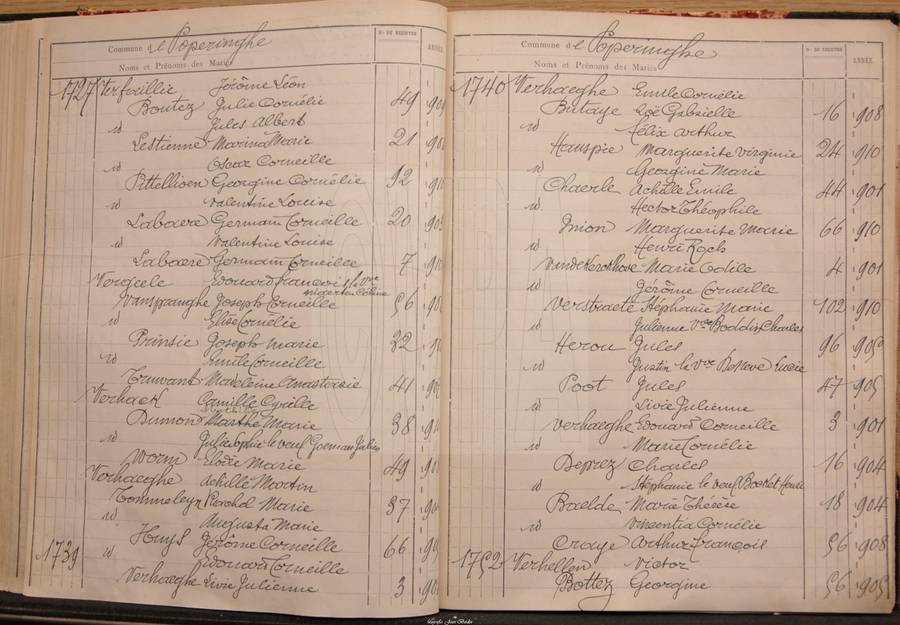 Commune de Poperinghe
N° DE REGISTRE
ANNÉE
Noms et Prénoms des Mariés
1727 Verfaillie Jérôme Léon
Boutez Julie Cornélie 49 90
id Jules Albert
Lestienne Marina Marie 21 90
id Oscar Corneille
Pittellioen Georgine Cornélie 92 91
id Valentine Louise
Labaere Germain Corneille 20 90
id Valentine Louise
Labaere Germain Corneille 7 91
Vergeele Edouard François
Vanspranghe Joseph Corneille 56 90
id Elise Cornélie
Prinsie Joseph Marie 32 9
id Emile Corneille
Truwant Madeleine Anastasie 41 90
Verhack Camille Cyrille
Dumon Marthe Marie 38 9
id Julie Sophie le veuf Goeman Jules
Worm Elodie Marie 49 90
Verhaeghe Achille Martin
Tommeleyn Rachel Marie 37 90
id Augusta Marie
Huys Jérôme Corneille 66 90
1739 id Edouard Corneille
Verhaeghe Livie Julienne 3 90
Commune de Poperinghe
N° DE REGISTRE
ANNÉE
Noms et Prénoms des Mariés
1740 Verhaeghe Emile Cornélie
Butaye Zoë Gabrielle 16 908
id Félix Arthur
Hauspie Marguerite Virginie 24 910
id Georgine Marie
Chaerle Achille Emile 44 901
id Hector Théophile
Union Marguerite Marie 66 910
id Henri Roch
Vandekerckhove Marie Odile 4 901
id Jérôme Corneille
Verstraete Stéphanie Marie 102 910
id Julienne vve Boddin Charles
Herou Jules 96 905
id Justin le vve Lucie
Poot Jules 47 905
id Livie Julienne
Verhaeghe Edouard Corneille 3 901
id Marie Cornélie
Deprez Charles 16 904
id Stéphanie le veuf Henri
Baelde Marie Thérèse 18 904
id Vincentia Cornélie
Craye Arthur François 56 908
1752 Verhellen Victor
Bottez Georgine 56 905